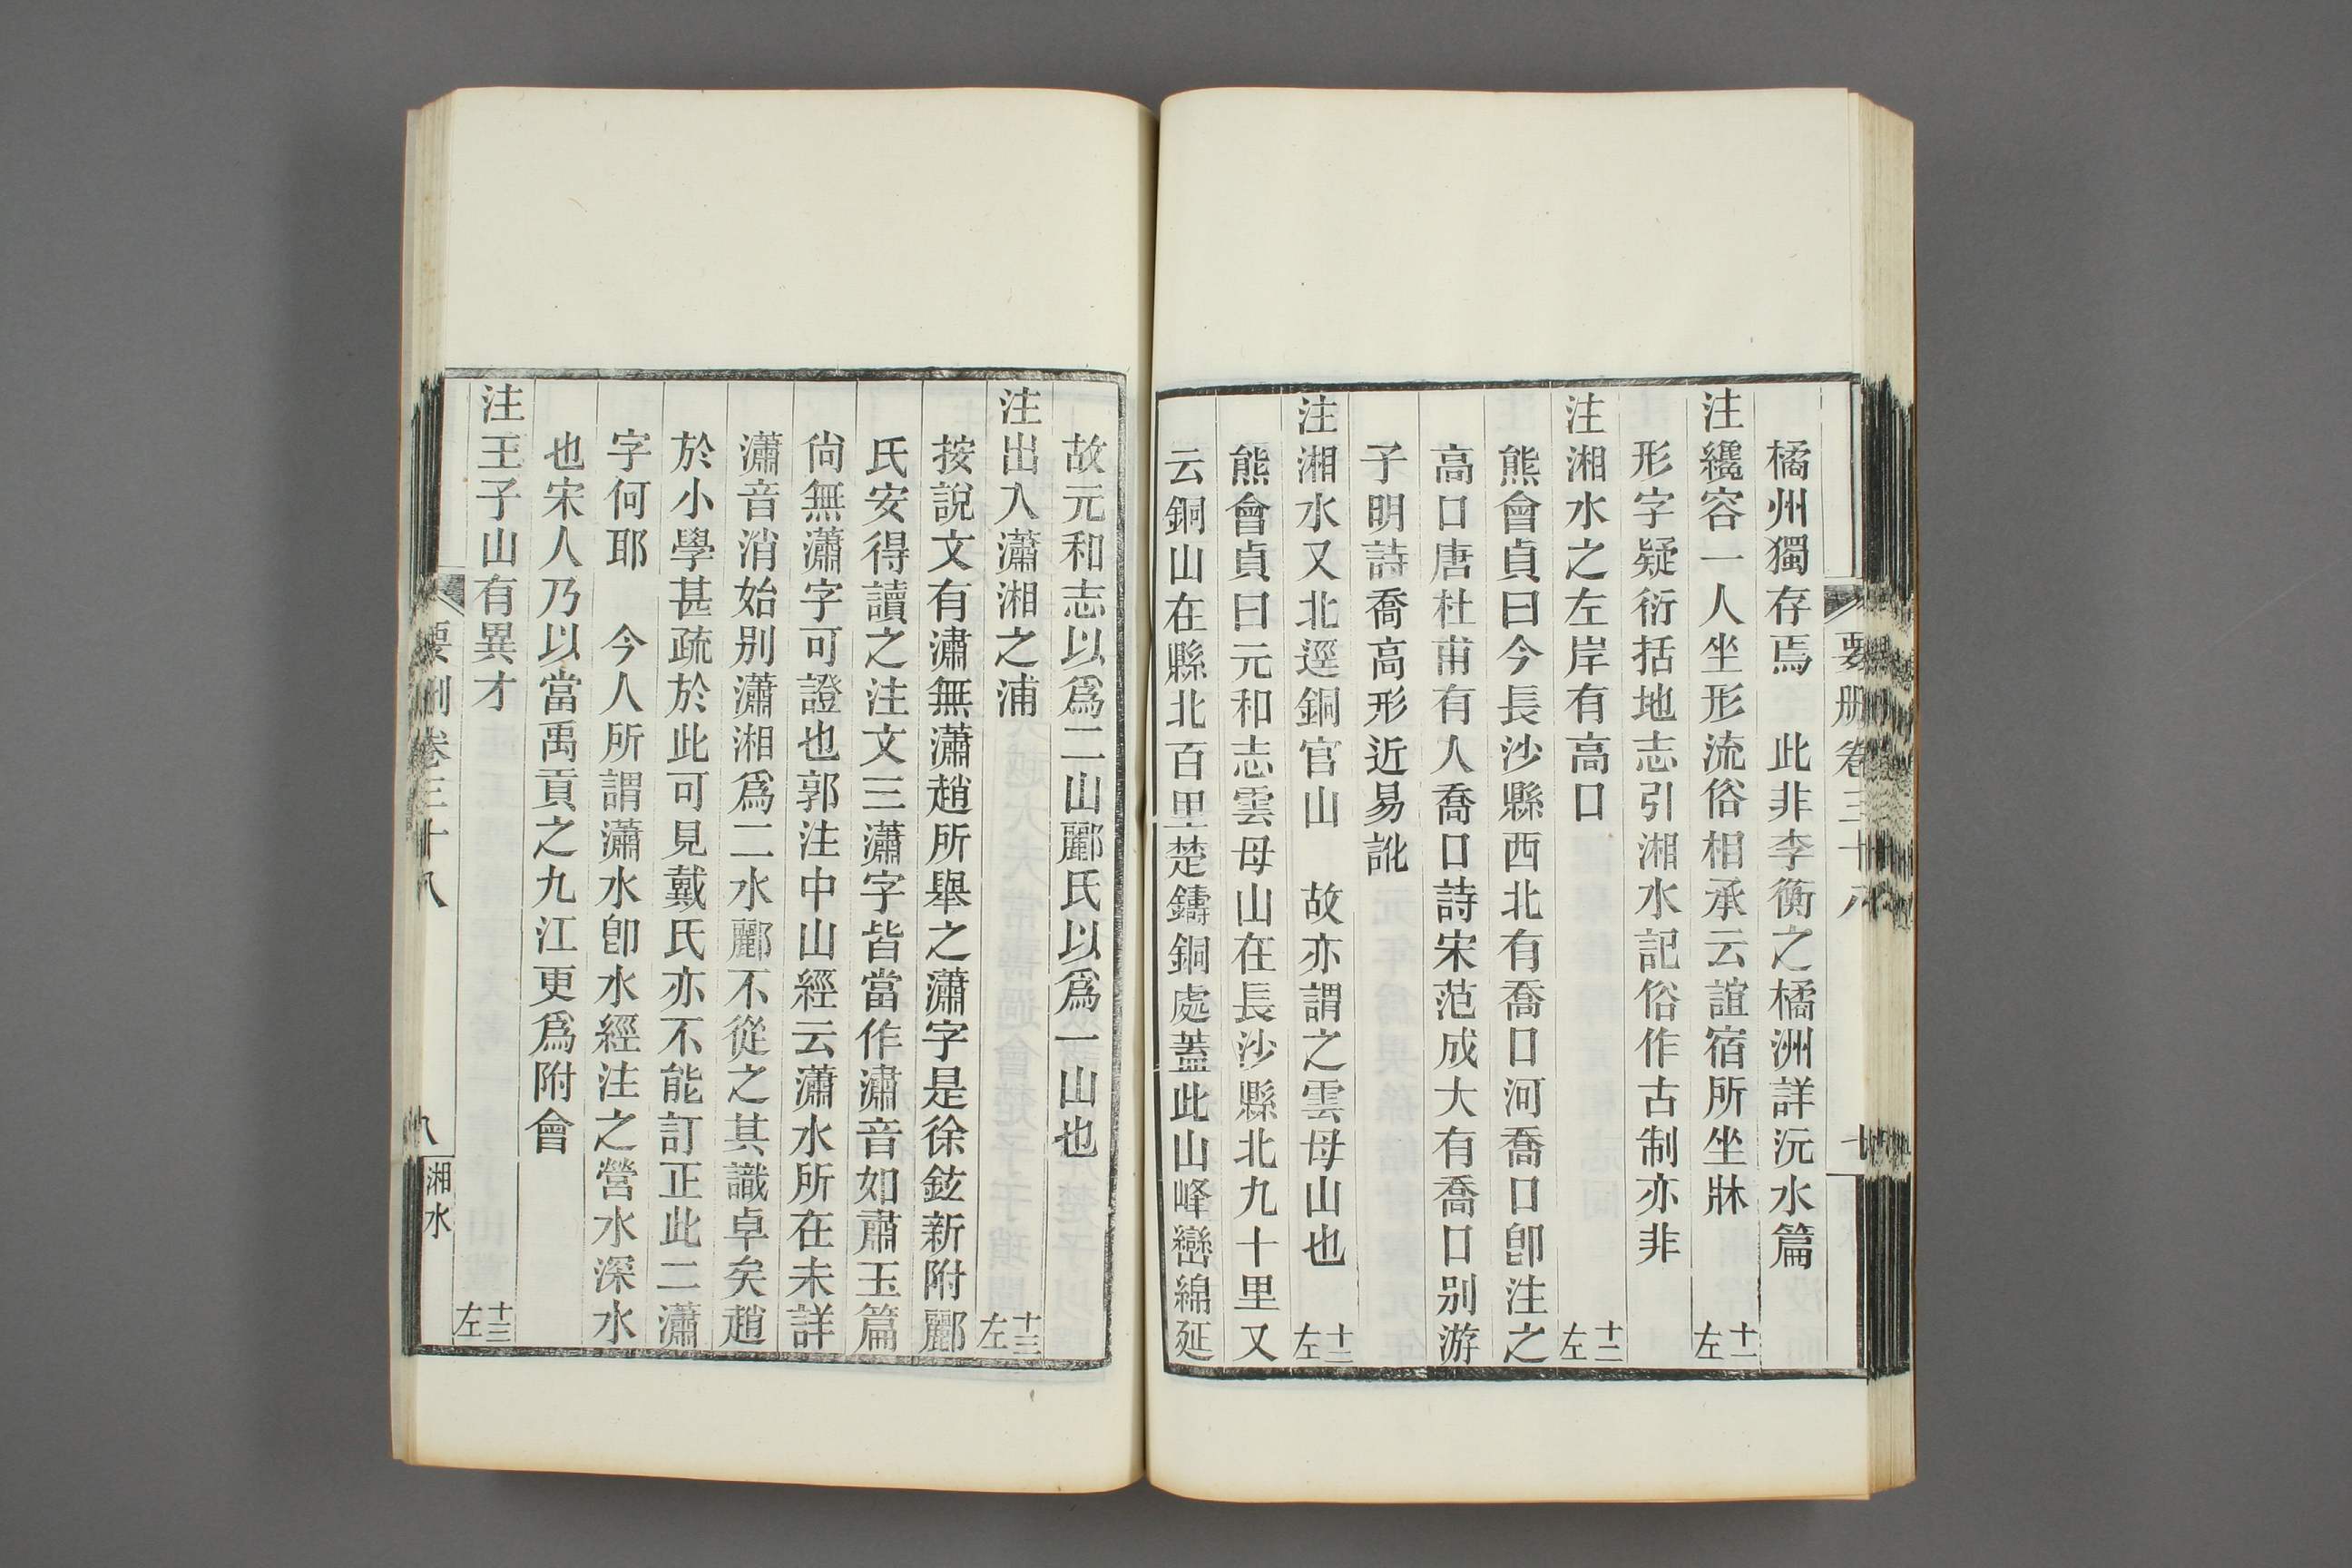 橘州獨存焉　此非李衡之橘洲詳沅水篇
注纔容一人坐形流俗相承云誼宿所坐牀　十一左
形字疑衍括地志引湘水記俗作古制亦非
注湘水之左岸有高口　十二左
熊會貞曰今長沙縣西北有喬口河喬口卽注之
高口唐杜甫有人喬口詩宋范成大有喬口别游
子明詩喬高形近易訛
注湘水又北逕銅官山　故亦謂之雲母山也　十二左
熊會貞曰元和志雲母山在長沙縣北九十里又
云銅山在縣北百里楚鑄銅處蓋此山峰巒綿延
故元和志以爲二山酈氏以爲一山也
注出入瀟湘之浦　十三左
按說文有潚無瀟趙所舉之瀟字是徐鉉新附酈
氏安得讀之注文三瀟字皆當作潚音如肅玉篇
尙無瀟字可證也郭注中山經云瀟水所在未詳
瀟音消始别瀟湘爲二水酈不從之其識卓矣趙
於小學甚疏於此可見戴氏亦不能訂正此二瀟
字何耶　今人所謂瀟水卽水經注之營水深水
也宋人乃以當禹貢之九江更爲附會
注王子山有異才　十三左
要刪卷三十八　湘水